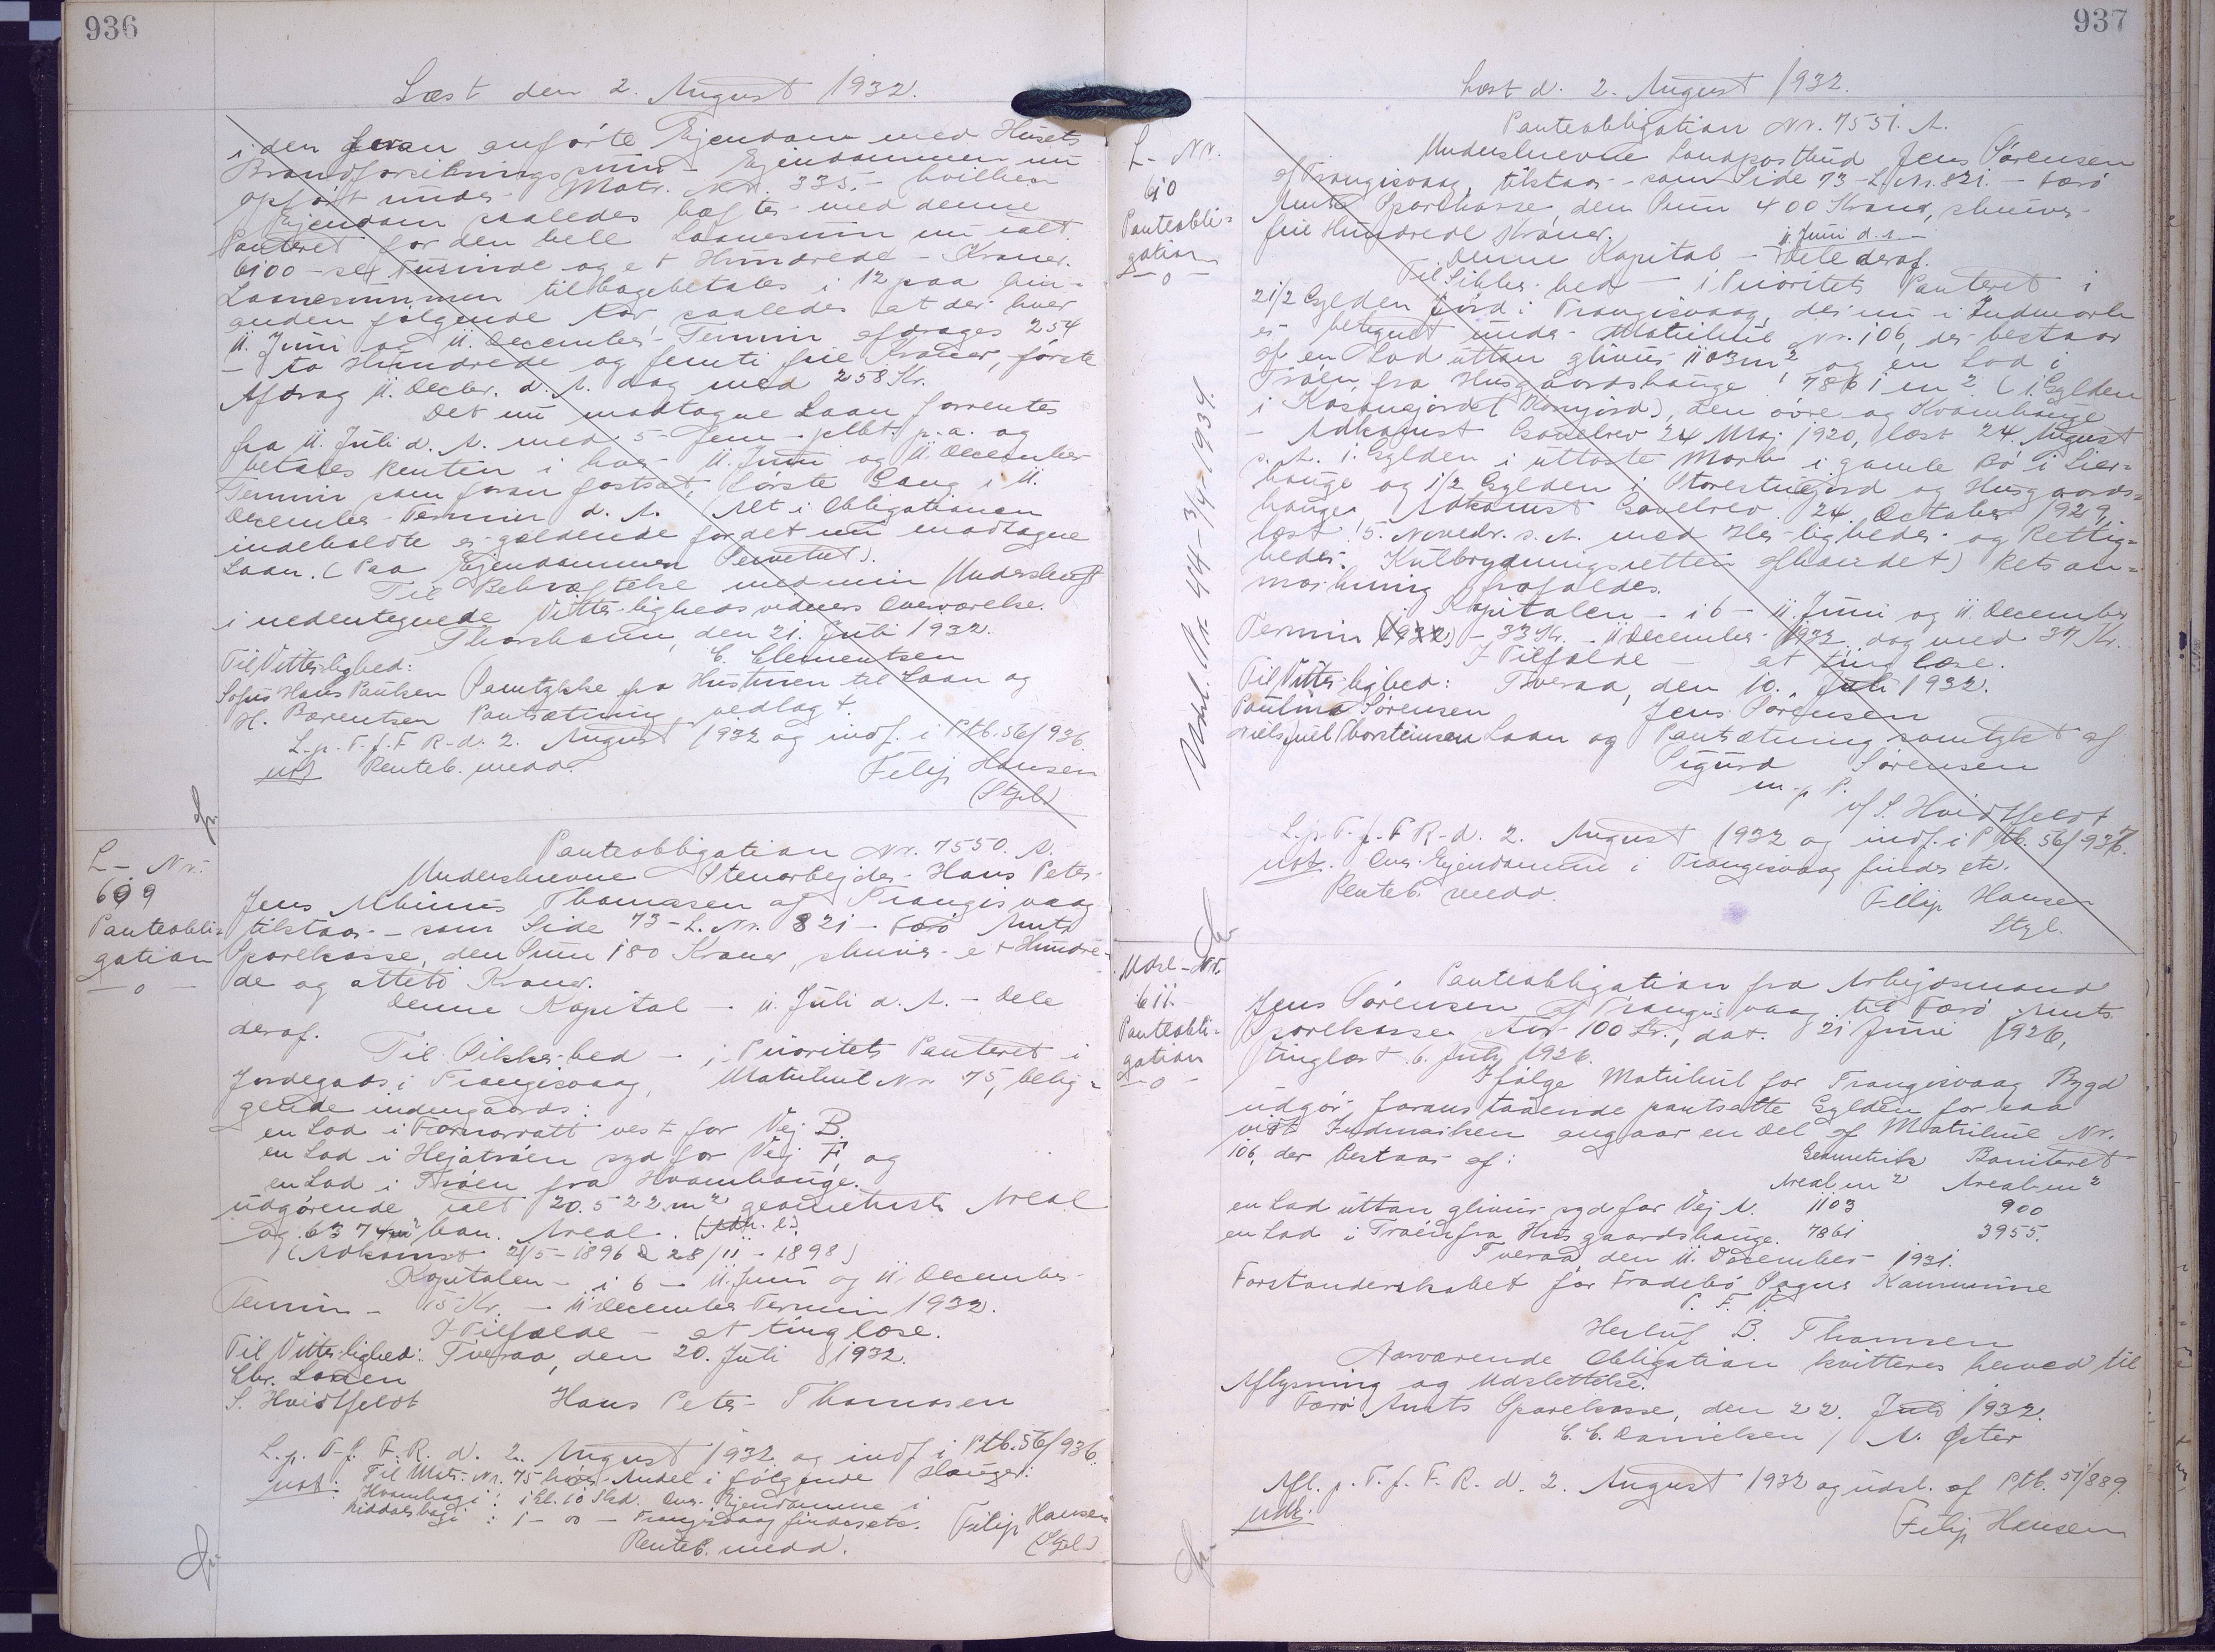 936
Læst den 2. August 1932.
i den foran anförte Ejendom med Husets
Brandforsikringssum - Ejendommen nu
opfört under Matr. Nr. 335. - hvilken
Ejendom saaledes hæfter med denne
Panteret for den hele Laanesum nu ialt
6100 - sex Tusinde og et Hundrede - Kroner.
Laanesummen tilbagebetales i 12 paa hin-
anden fölgende Aar saaledes at der hver
11. Juni og 11. December Termin afdrages 254
- to Hundrede og femti fire Kroner, förste
Afdrag 11. Decbr. d. A. dog med 258 Kr.
Det nu modtagne Laan forrentes
fra 11. Juli d. A. med 5 - fem - pCt. p.a. og
betales Renten i hver 11. Juni og 11. December
Termin som foran fastsat, förste Gang i 11.
December Termin d. A. Alt i Obligationen
indeholdte er gældende for det nu modtagne
Laan. (Paa Ejendommen Servitut).
Til Bekræftelse med min Underskrift
i nedentegnede Vitterlighedsvidners Overværelse.
Thorshavn, den 21. Juli 1932.
Til Vitterlighed: C. Clementsen
Sofus Hans Paulsen Samtykke fra Hustruen til Laan og
H. Barentsen Pantsætning vedlagt.
L. p. T. f. F. R. d. 2. August 1932 og indf. i Ptb. 56/936.
not Renteb. medd. Filip Hansen
(Stgel.)
L. Nr.
609
Panteobli-
gation
- o -
Panteobligation Nr. 7550. A.
Underskrevne Stenarbejder Hans Peter
Jens Thomasen af Trangisvaag
tilstaar - som Side 73 - L. Nr. 821 - Færö Amts
Sparekasse, den Sum 180 Kroner, skriver et Hundre-
de og otteti Kroner.
Denne Kapital - 11. Juli d. A. - Dele
deraf.
Til Sikkerhed - i Prioritets Panteret i
Jordegods i Trangisvaag, Matrikul Nr. 75, belig-
gende indengaards:
en Lod i vest for Vej B.
en Lod i Hejatröen syd for Vej F, og
en Lod i Tröen fra Hvamhauge.
udgörende ialt 20.522 m² geometrisk Areal
og 6374 m² bon. Areal.
(Adkomst 21/5 - 1896 & 28/11 - 1898)
Kapitalen - i 6 - 11. Juni og 11. December
Termin - 15 Kr. - 11 December Termin 1932.
I Tilfælde - at tinglæse.
Til Vitterlighed: Tveraa, den 20. Juli 1932.
Chr. Lonen
S. Hvidtfeldt Hans Peter Thomasen
L. p. T. f. F. R. d. 2. August 1932 og indf. i Ptb. 56/936.
not. Til Matr. Nr. 75 hörer Andel i fölgende Hauger:
Hvamhagi: 1 Gl. 10 Skd. Over Ejendomme i
: 1 - 00 - Trangisvaag findes etc. Filip Hansen
Renteb. medd. (Stgel.)
937
Læst d. 2. August 1932.
L. Nr.
610
Panteobli-
gation
- o -
Udsl. Nr. 44 - 3/4 - 1934.
Panteobligation Nr. 7551. A.
Underskrevne Landpostbud Jens Sörensen
af Trangisvaag, tilstaar - som Side 73 - L. Nr. 821. - Færö
Amts Sparekasse, den Sum 400 Kroner, skriver
fire Hundrede Kroner.
Denne Kapital - 11. Juni d. A. - Dele deraf.
Til Sikkerhed - i Prioritets Panteret i
2 1/2 Gylden Jord i Trangisvaag, der nu i Indmark
er betegnet under Matrikul Nr. 106, der bestaar
af en Lod uttan glivur 1103 m² og en Lod i
Tröen fra Husgaardshauge 7861 m² (1 Gylden
i (Kornjord), den övre og Kvamhauge
- Adkomst Gavebrev 24 Maj 1920, læst 24. August
s. A. 1 Gylden i uttoste Mork i gamle Bö i Lier-
hauge og 1/2 Gylden i Storestuejord og Husgaards-
hauge. Adkomst Gavebrev 24. October 1929,
læst 5. Novebr. s. A. med Herligheder og Rettig-
heder. Kulbrydningsretten afhændet) Retsan-
mærkning frafaldes.
Kapitalen - i 6 - 11. Juni og 11. December
Termin (1932) - 33 Kr. - 11 December 1932 dog med 37 Kr.
I Tilfælde - at tinglæse.
Til Vitterlighed: Tveraa, den 10. Juli 1932.
Paulina Sörensen Jens Sörensen
Niels Juel Thorsteinsson Laan og Pantsætning samtykt af
Sigurd Sörensen
m. p. P.
v/ S. Hvidtfeldt
L. p. T. f. F. R. d. 2. August 1932 og indf. i Ptb. 56/937.
not. Over Ejendomme i Trangisvaag findes etc.
Renteb. medd. Filip Hansen
Stgl.
Udsl. Nr.
611.
Panteobli-
gation
- o -
Panteobligation fra Arbejdsmand
Jens Sörensen af Trangisvaag til Færö Amts
Sparekasse stor 100 Kr., dat. 21 Juni 1926,
tinglæst 6. July 1926.
Ifölge Matrikul for Trangisvaag Bygd
udgör foranstaaende pantsatte Gylden for saa
vidt Indmarken angaar en Del af Matrikul Nr.
106, der bestaar af: Geometrisk Boniteret
Areal m² Areal m²
en Lod uttan glivur syd for Vej A. 1103 900
en Lod i Tröen fra Husgaardshauge. 7861 3955.
Tveraa den 11. December 1931.
Forstanderskabet for Frodebö Sogns Kommune
P. F. V.
Herluf B. Thomsen
Nærværende Obligation kvitteres herved til
Aflysning og Udslettelse.
Færö Amts Sparekasse, den 22. Juli 1932.
C. C. Danielsen / A. Öster
Afl. p. T. f. F. R. d. 2. August 1932 og udsl. af Ptb. 51/889.
Filip Hansen